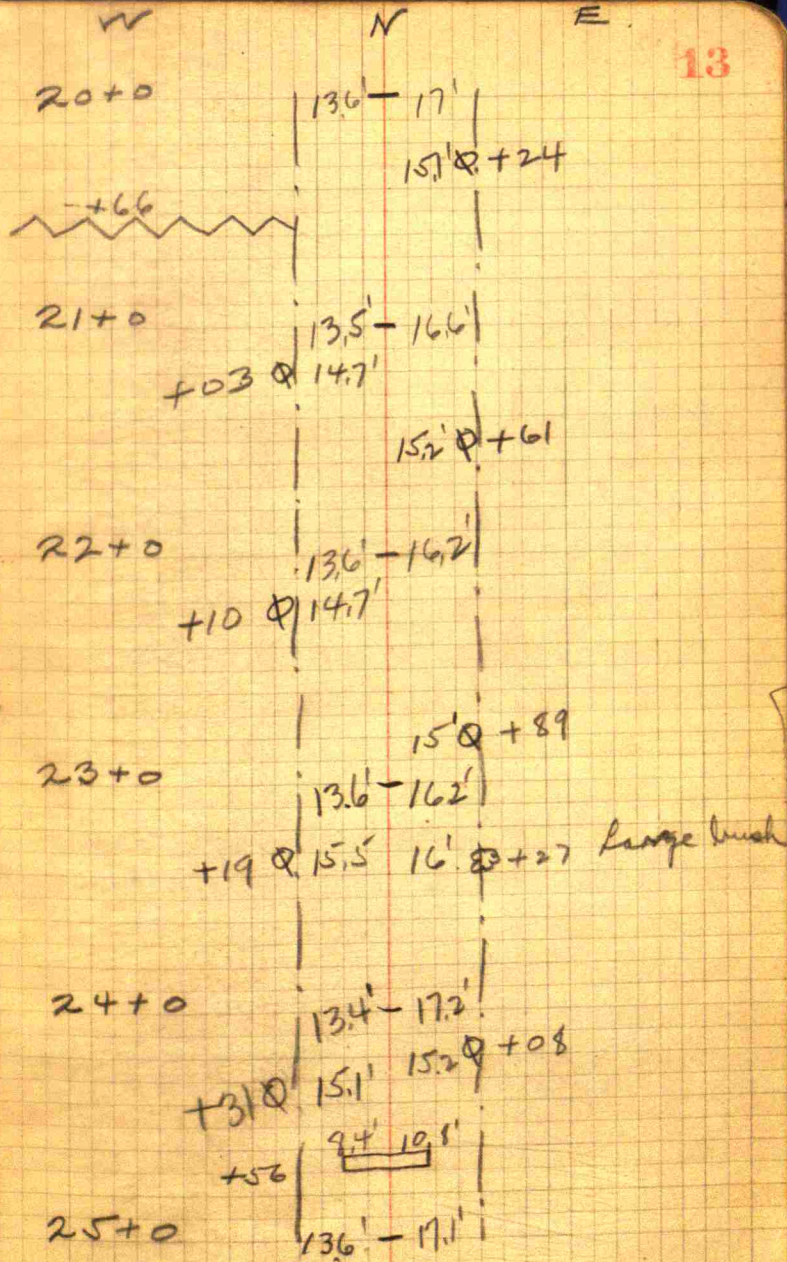 W N E
13
20+0 13.6' - 17'
15.1' +24
+66
21+0 13.5' - 16.6'
+03 14.7'
15.2' +61
22+0 13.6' - 16.2'
+10 14.7'
15' +89
23+0 13.6' - 16.2'
+19 15.5 16' +27 Large bush
24+0 13.4' - 17.2'
15.2 +08
+31 15.1'
10.8'
+56
25+0 13.6' - 17.1'